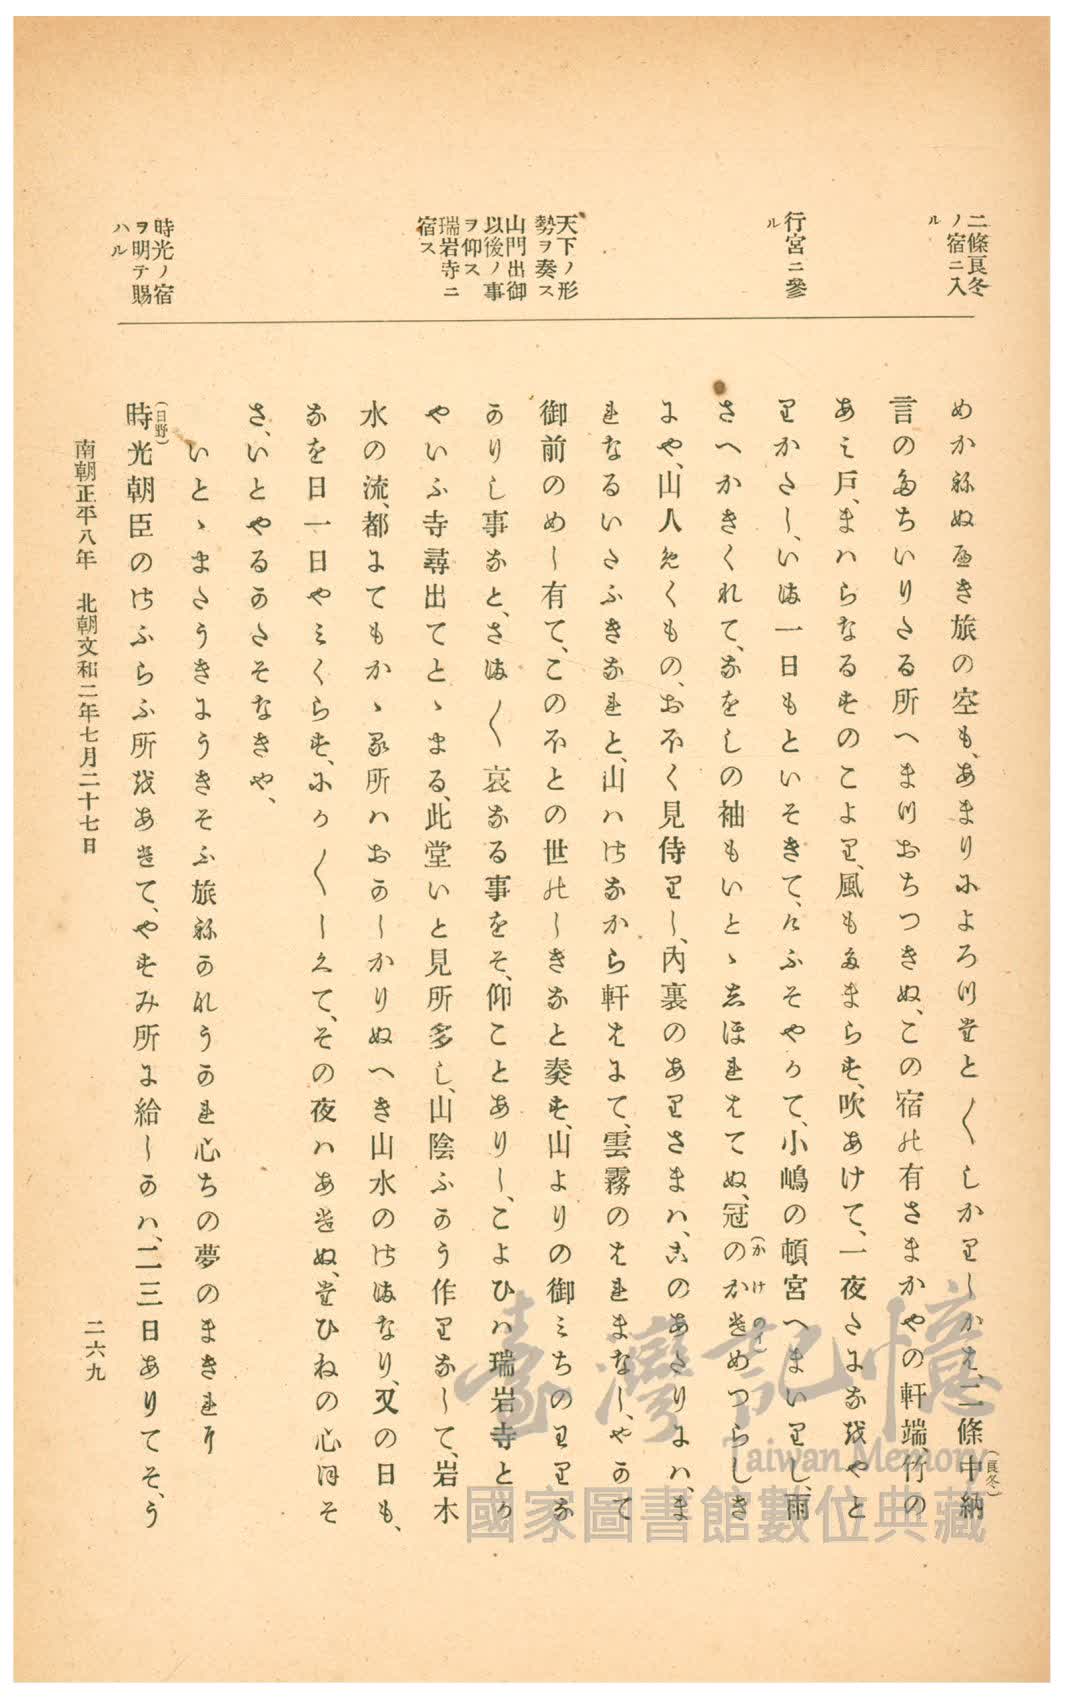 二條良冬
ノ宿ニ入
ル
行宮ニ參
ル
天下ノ形
勢ヲ奏ス
山門出御
以後ノ事
ヲ仰ス
瑞岩寺ニ
宿ス
時光ノ宿
ヲ明テ賜
ハル
めかねぬへき旅の空も、あまりによろつたと〱しかりしかは、二條中納(良冬)
言のたちいりたる所へまつおちつきぬ、この宿の有さまかやの軒端、竹の
あミ戸、まハらなるすのこより、風もたまらす、吹あけて、一夜たになをやと
りかたし、いま一日もといそきて、けふそやかて、小嶋の頓宮へまいりし、雨
さへかきくれて、なをしの袖もいとゝしほれはてぬ、冠のかけ(かけのイ)めつらしき
にや、山人めくもの、おほく見侍りし、內裏のありさまハ、このあたりにハ、ま
れなるいたふきなれと、山ハさなから軒はにて、雲霧のはれまなし、やかて
御前のめし有て、このほとの世のしきなと奏す、山よりの御ミちのわりな
かりし事なと、さま〱哀なる事をそ、仰ことありし、こよひハ瑞岩寺とか
やいふ寺尋出てとゝまる、此堂いと見所多し、山陰ふかう作りなして、岩木
水の流、都にてもかゝる所ハおかしかりぬへき山水のさまなり、又の日も、
なを日一日やミくらす、にか〱しくて、その夜ハあけぬ、たひねの心ほそ
さ、いとやるかたそなきや、
いとゝまたうきにうきそふ旅ねかなうかれ心ちの夢のまきれに
時光(日野)朝臣のさふらふ所をあけて、やすみ所に給しかハ、二三日ありてそ、う
南朝正平八年 北朝文和二年七月二十七日
二六九
臺灣記憶
Taiwan Memory
國家圖書館數位典藏